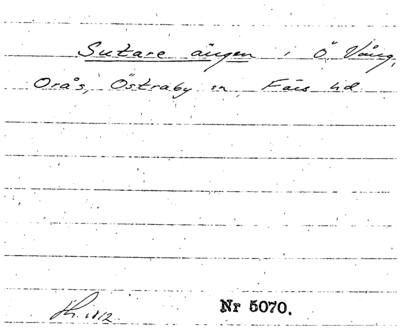 Sutare ängen i Ö Vång,
Orås, Östraby sn Färs hd
Nr 5070.